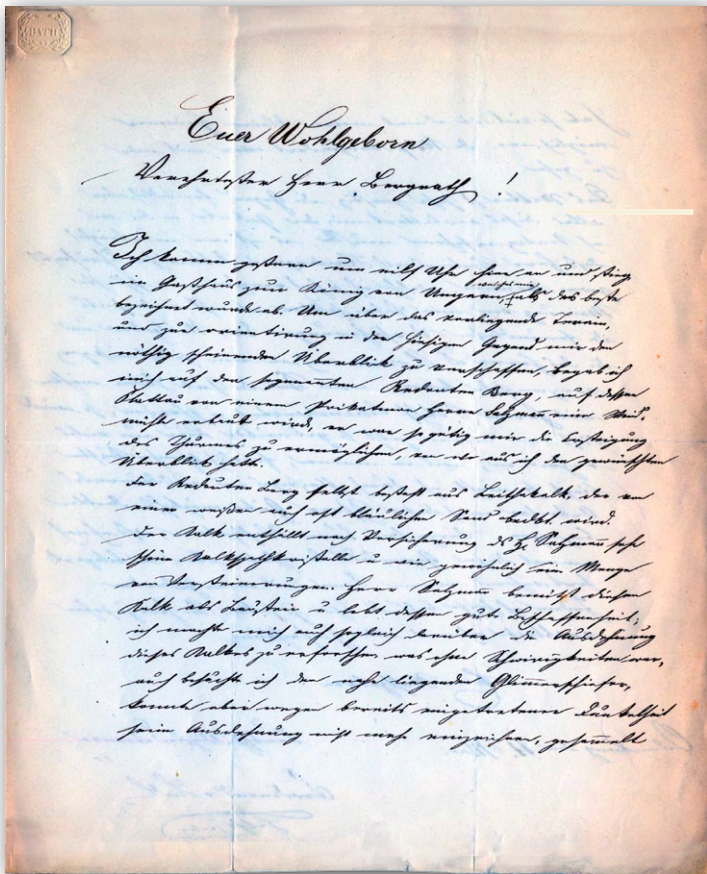 BATH
Euer Wohlgeborn
Verehrtester Herr Bergrath !
Ich kamm gestern um eilf Uhr hier an und stieg
im Gasthaus zum König von Ungarn, welches mir als das beste
bezeichnet wurde ab. Um über das vorliegende Terrain,
und zur orientirung in der hiesigen Gegend mir den
nöthig scheinenden Überblick zu verschaffen, begab ich
mich auf den sogenannten Redouten Berg, auf dessen
Plattau von einem Privatmann Herrn Salzmann eine
erbaut wird, er war so gütig mir die Besteigung
des Thurmes zu ermöglichen, von wo aus ich den gewünschten
Überblick hatte.
Der Redouten Berg selbst besteht aus Leithakalk der von
einem weißen auch oft bläulichen Sand bedekt wird.
Der Kalk enthällt nach Versicherung des H. Salzmann sehr
schöne Kalkspathkristalle u wie gewöhnlich eine Menge
von Versteinerungen. Herr Salzmann benützt diesen
Kalk als Baustein u lobt dessen gute Beschaffenheit;
ich machte mich auch sogleich darüber die Ausdehnung
dieses Kalkes zu erforschen was ohne Schwierigkeiten war,
auch besucht ich den nahe liegenden Glimmerschiefer,
konnte aber wegen bereits eingetretener Dunkelheit
seine Ausdehnung nicht mehr einzeichnen, gesammelt